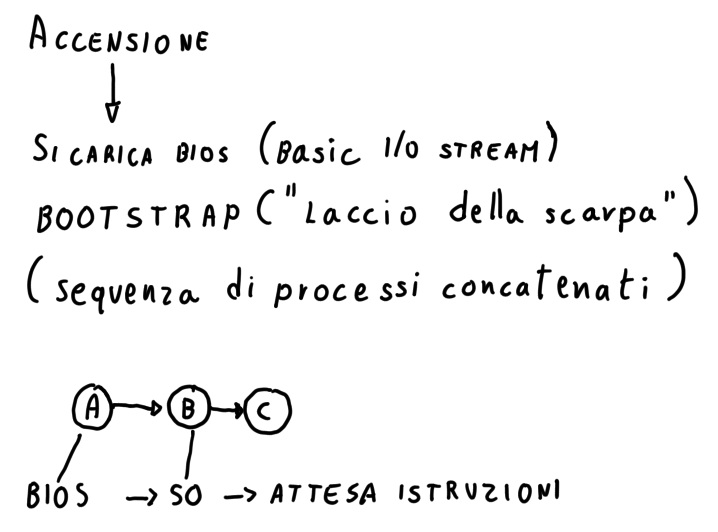 ACCENSIONE
SI CARICA BIOS (Basic I/O STREAM)
BOOTSTRAP ("Laccio della scarpa")
(sequenza di processi concatenati)
A B C
BIOS → SO → ATTESA ISTRUZIONI